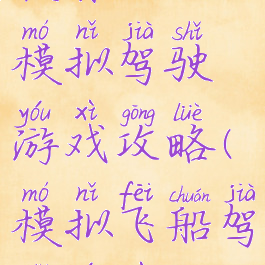 mó nǐ jià shǐ
模拟驾驶
yóu xì gōng lüè
游戏攻略(
mó nǐ fēi chuán jià
模拟飞船驾